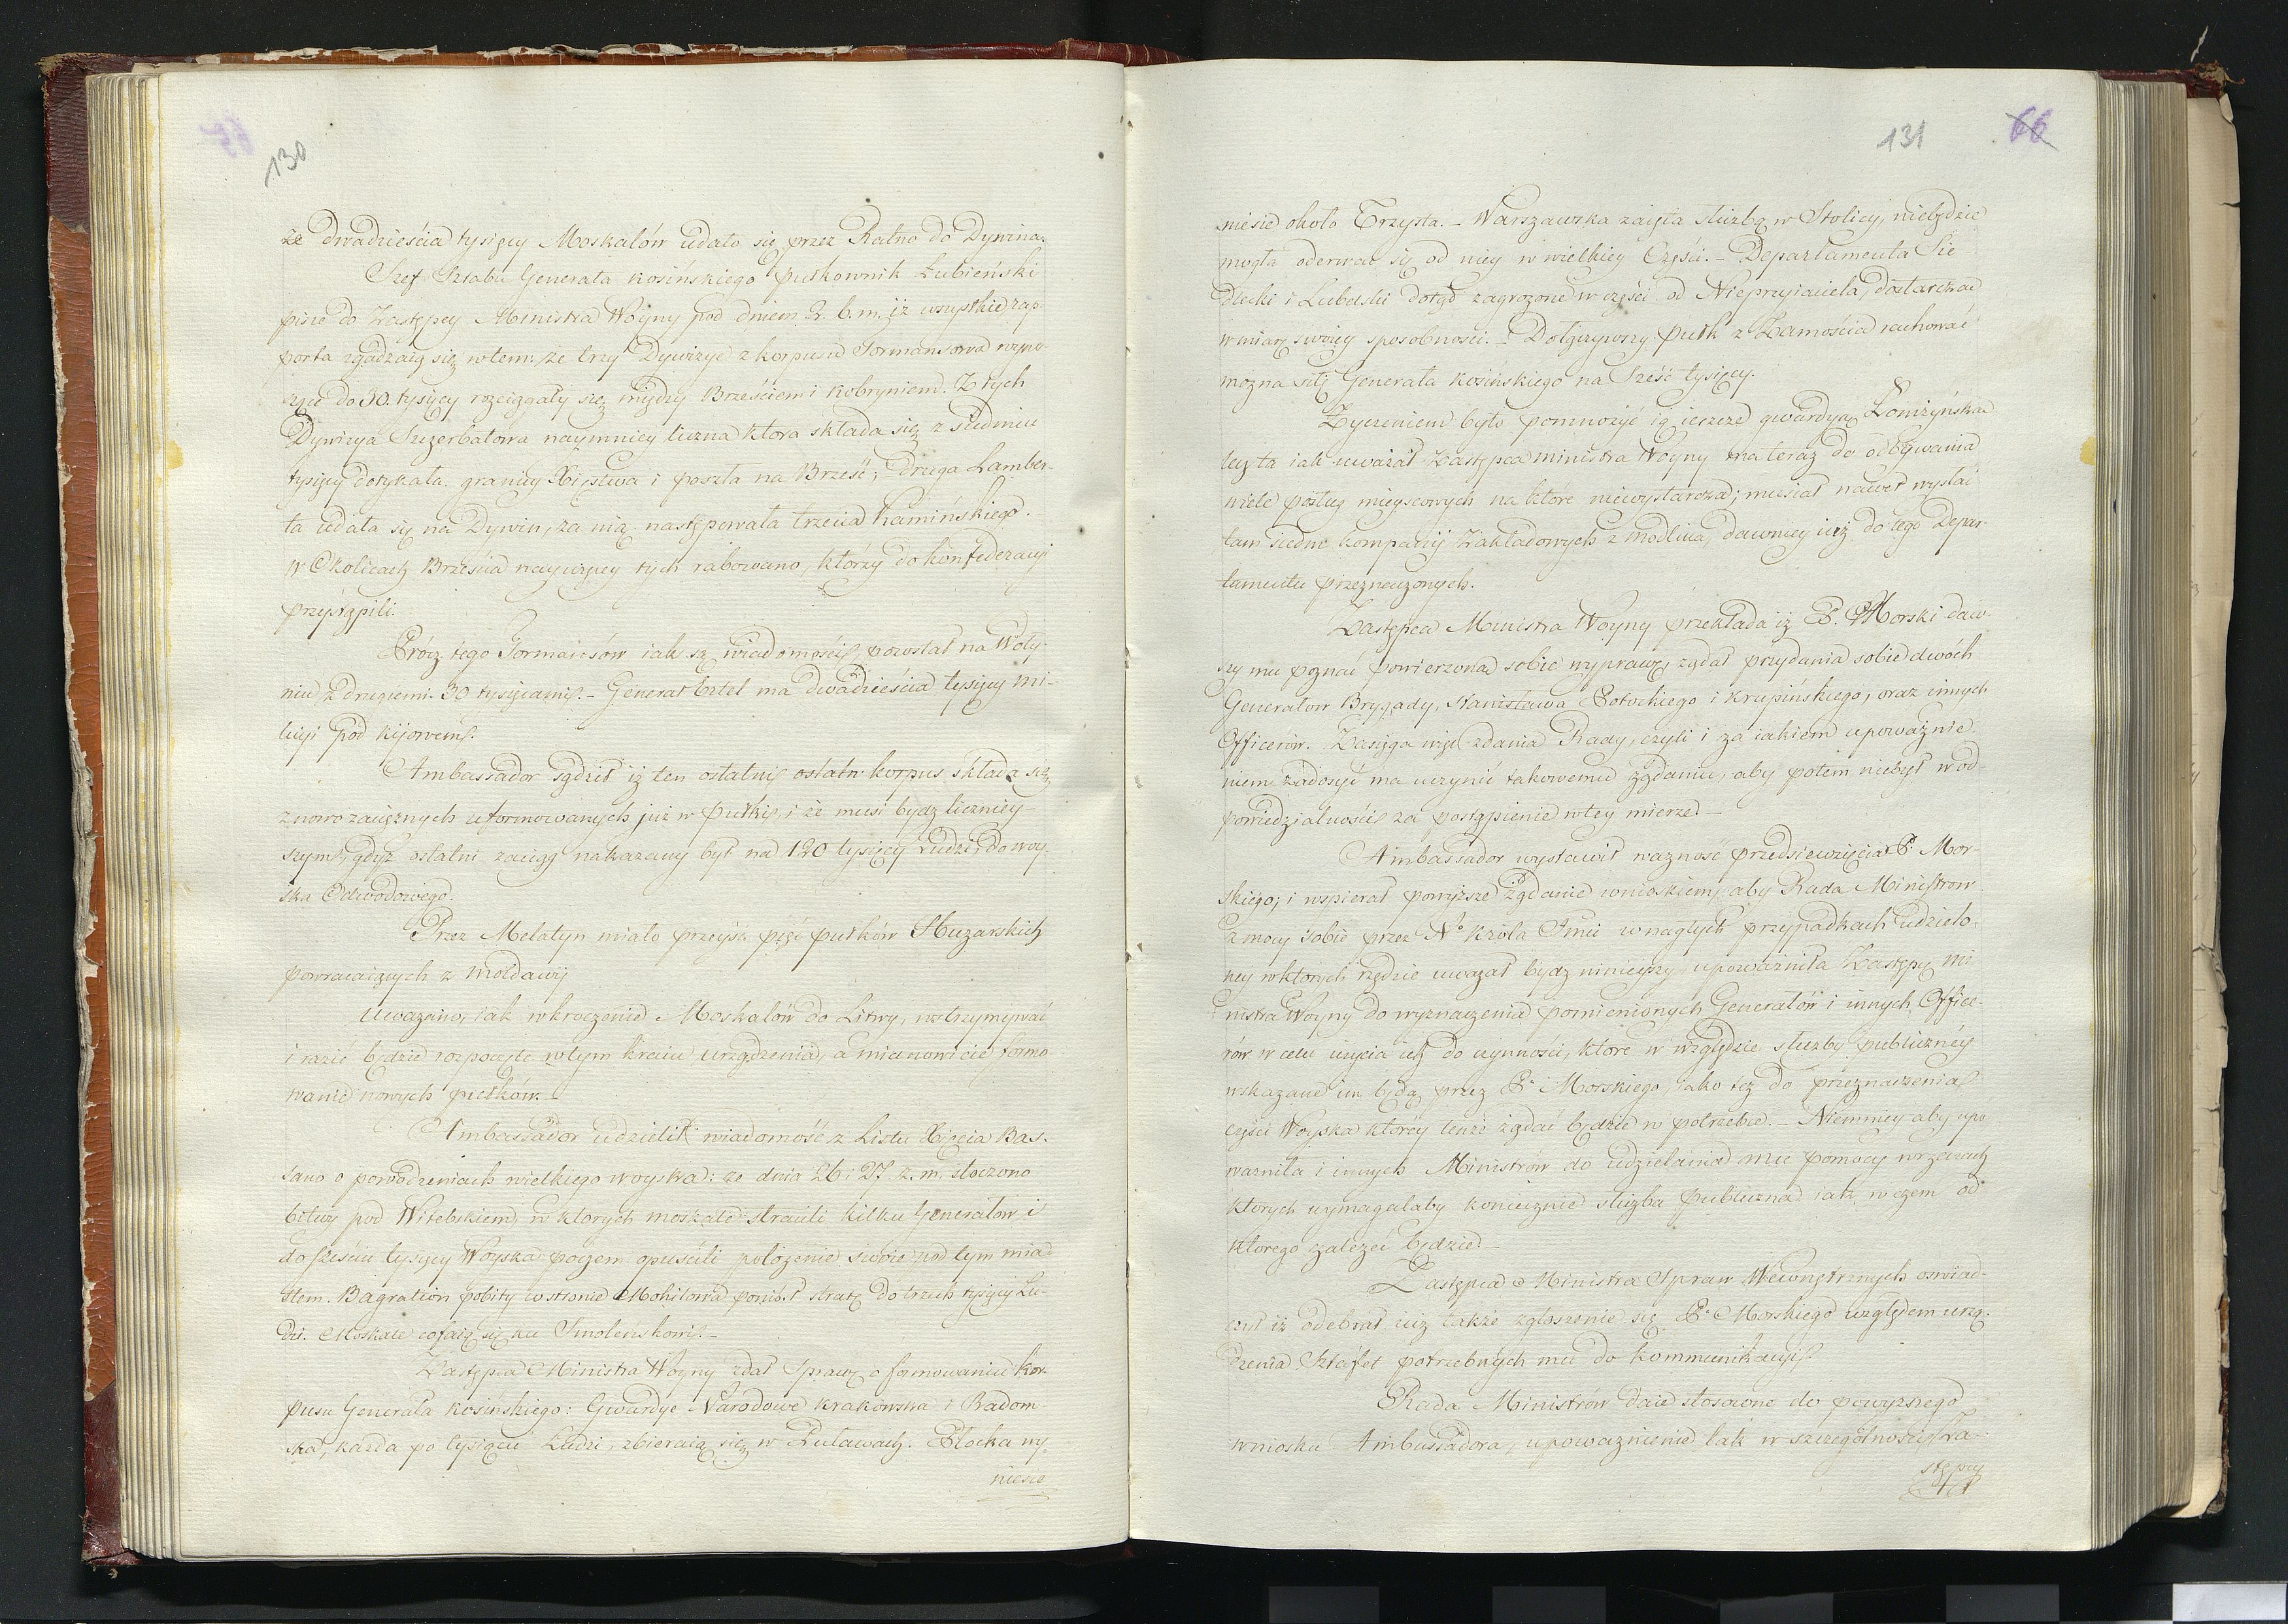 130
że Dwadzieścia tysięcy Moskalów udało się przez Ratno do Dywina.
Szef Sztabu Generała Kosińskiego Pułkownik Łubieński
pisze do Zastępcy Ministra Woyny pod dniem 2. b. m. iż wszystkie rap-
porta zgadzaią się wtem: że trzy Dywizye z korpusu Tormansowa wyno-
szące do 30. tysięcy rozciągały się między Brześciem i Kobryniem. Z tych
Dywizya Szczerbatowa naymniey liczna która składa się z siedmiu
tysięcy dotykała granicy Xięstwa i poszła na Brześć; Druga Lamber-
ta udała się na Dywin, za nią następowała trzecia Kamińskiego.
W Okolicach Brześcia naywięcey tych rabowano, którzy do konfederacyi
przystąpili.
Prócz tego Tormansów iak są wiadomości, pozostał na Woły-
niu z drugiemi 30 tysiącami. – Generał Ertel ma dwadzieścia tysięcy mi-
licyi pod Kijowem.
Ambassador sądził iż ten ostatni ostatn korpus składa się
z nowo zaciężnych uformowanych już w pułki, i że musi bydź licznicy-
szym, gdyż ostatni zaciąg nakazany był na 120 tysięcy Ludzi do woy-
ska Odwodowego.
Przez Melatyn miało przeyść pięć pułków Huzarskich
powracaiących z Mołdawij
Uważano, iak wkroczenie Moskalów do Litwy, wstrzymywać
i razić będzie rozpoczęte w tym kraiu urządzenia, a mianowicie formo-
wanie nowych pułków. –
Ambassador udzielił wiadomość z Listu Xięcia Bas-
sano o powodzeniach wielkiego woyska: że dnia 26 i 27 z. m. stoczono
bitwy pod Witebskiem, w ktorych moskale stracili kilku Generałow, i
do sześciu tysięcy Woyska poczem opuścili położenie swoie pod tym mia-
stem. Bagration pobity w stronie Mohilowa poniósł stratę do trzech tysięcy Lu-
dzi. Moskale cofaią się ku Smoleńskowi. –
Zastępca Ministra Woyny zdał Sprawę o formowaniu kor-
pusu Generała Kosińskiego: Gwardye Narodowe Krakowska i Radom-
ska, każda po tysiącu Ludzi, zbieraią się w Puławach. Płocka wy-
niesie
131
66
niesie około Trzysta. – Warszawska zaięta służbą w Stolicy, niebędzie
mogła oderwać się od niey w wielkiey Części. – Departamenta Sie-
dlecki i Lubelski dotąd zagrożone w części od Nieprzyiaciela, dostarczać
w miarę swoiey sposobności. – Dołączywszy pułk z Zamościa rachować
można siłę Generała Kosińskiego na Sześć tysięcy.
Życzeniem było pomnożyć ią ieszcze gwardyą Łomżyńska
lecz ta iak uważał Zastępca ministra Woyny ma teraz do odbywania
wiele posług mieyscowych na które niewystarcza; musiał nawet wysłać
tam siedm kompanij Zakładowych z Modlina, dawniey iuż do tego Depar-
tamentu przeznaczonych.
Zastępca Ministra Woyny przekłada iż P. Morski daw-
szy mu poznać powierzoną sobie wyprawę, żądał przydania sobie dwóch
Generałow Brygady, Stanisława Potockiego i Krupińskiego, oraz innych
Officerów. Zasięga więc zdania Rady, czyli i za iakiem upoważnie-
niem zadosyć ma uczynić takowemu żądaniu, aby potem niebył w od-
powiedzialności za postąpienie w tey mierze. –
Ambassador wystawił ważność przedsiewzięcia P. Mor-
skiego; i wspierał powyższe żądanie wnioskiem, aby Rada Ministrow
z mocy sobie przez N° Króla Jmci w nagłych przypadkach udzielo-
ney w ktorych rzędzie uważał bydź ninieyszy, upoważniła Zastępcę Mi-
nistra Woyny do wyznaczenia pomienionych Generałów i innych Office-
rów w celu użycia ich do czynności, które w względzie służby publiczney
wskazane im będą przez P. Morskiego, iako też do przeznaczenia
części Woyska ktorey tenże żądać będzie w potrzebie. – Niemniey aby upo-
ważniła i innych Ministrów do udzielania mu pomocy w rzeczach
ktorych wymagałaby koniecznie służba publiczna iak w czem od
ktorego zależeć będzie. –
Zastępca Ministra Spraw Wewnętrznych oswiad-
czył iż odebrał iuz także zgłoszenie się P. Morskiego względem urzą-
dzenia Sztafet potrzebnych mu do kommunikacyi.
Rada Ministrów daie stosowne do powyzszego
wniosku Ambassadora, upoważnienie tak w szczególności Za-
stępcy